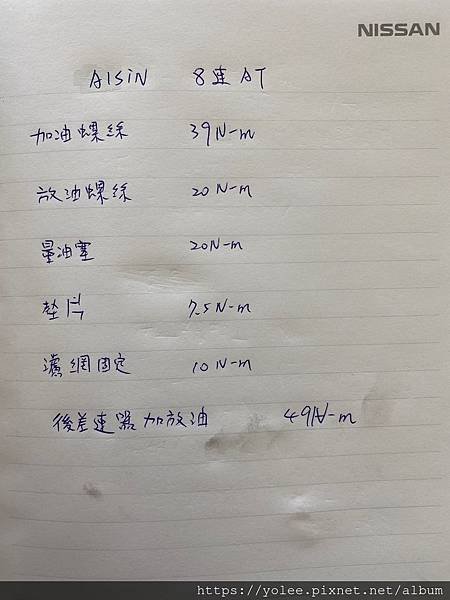 NISSAN
AISiN 8速AT
加油螺絲 39N-m
放油螺絲 20N-m
量油塞 20N-m
墊片 7.5N-m
濾網固定 10N-m
後差速器加放油 49N-m
https://yolee.pixnet.net/album